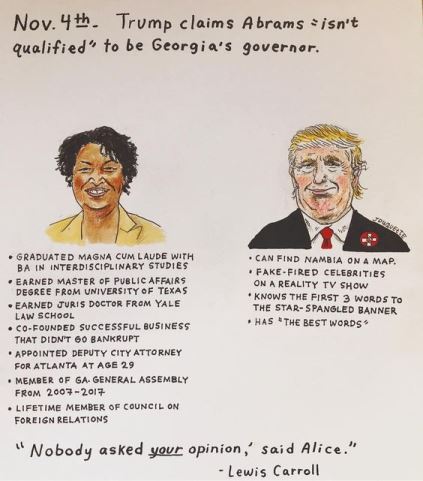 Nov. 4th. Trump claims Abrams "isn't
qualified" to be Georgia's governor.
• GRADUATED MAGNA CUM LAUDE WITH
BA IN INTERDISCIPLINARY STUDIES
• EARNED MASTER OF PUBLIC AFFAIRS
DEGREE FROM UNIVERSITY OF TEXAS
• EARNED JURIS DOCTOR FROM YALE
LAW SCHOOL
• CO-FOUNDED SUCCESSFUL BUSINESS
THAT DIDN'T GO BANKRUPT
• APPOINTED DEPUTY CITY ATTORNEY
FOR ATLANTA AT AGE 29
• MEMBER OF GA. GENERAL ASSEMBLY
FROM 2007-2017
• LIFETIME MEMBER OF COUNCIL ON
FOREIGN RELATIONS
• CAN FIND NAMBIA ON A MAP.
• FAKE-FIRED CELEBRITIES
ON A REALITY TV SHOW
• KNOWS THE FIRST 3 WORDS TO
THE STAR-SPANGLED BANNER
• HAS "THE BEST WORDS"
"Nobody asked your opinion,' said Alice."
- Lewis Carroll